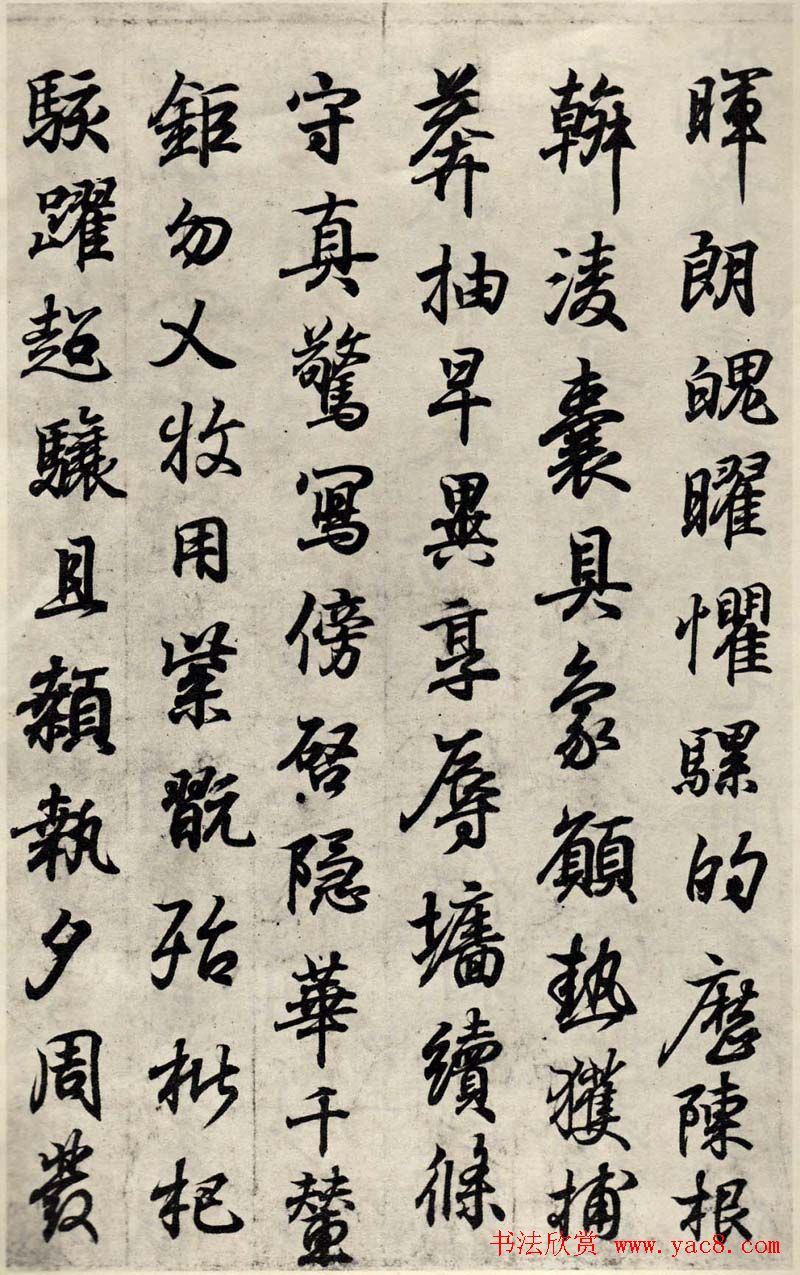 暉朗魄曜懼騾的歷陳根
韓淩囊具象願熱獲捕
莽抽早異享辱墻續條
守真驚寫傍啓隱華千輦
鉅勿乂牧用紫翫殆枇杷
駭躍超驤且顙執夕周發
书法欣赏 www.yac8.com